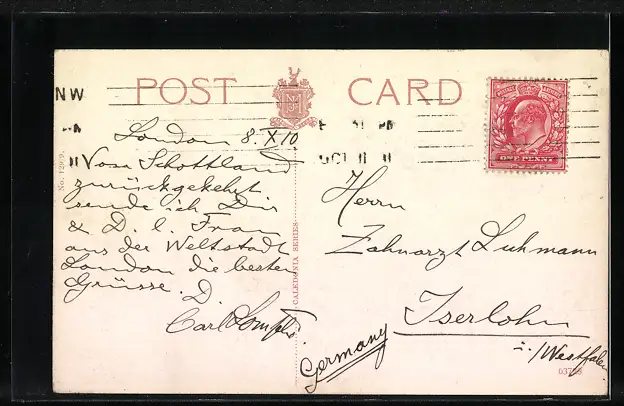 POST CARD
NW
OCT 11 11
ONE PENNY
No. F2909.
CALEDONIA SERIES
London 8. X 10
Von Schottland
zurückgekehrt
sende ich Dir
& D. l. Frau
aus der Weltstadt
London die besten
Grüsse. D.
Carl
Herrn
Zahnarzt Luhmann
Iserlohn
i./Westfalen
Germany